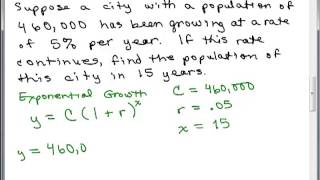 Suppose a city with a population of
460,000 has been growing at a rate
of 5% per year. If this rate
continues, find the population of
this city in 15 years.
Exponential Growth
C = 460,000
y = C(1+r)^x
r = .05
x = 15
y = 460,0